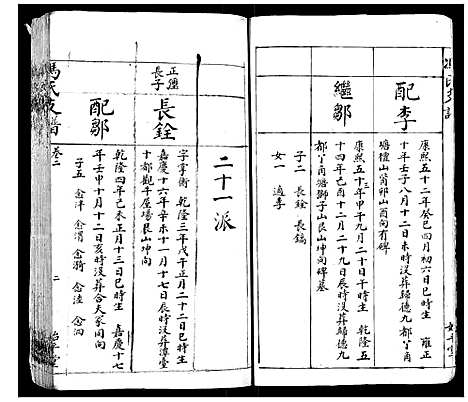 配李
康熙五十二年癸巳四月初六日巳時生 雍正
十年壬子八月十二日未時没葬歸德九都丫角
塘檀山翁邱山酉向有碑
繼鄒
康熙五十三年甲午九月二十日午時生 乾隆五
十四年己酉十二月二十九日辰時没葬歸德九
都丫角塘獅子山艮山坤向碑墓
子二 長銓 長鎬
女一 適李
二十一派
正繼長子
長銓
字掌衡 乾隆三年戊午正月二十二日時生
嘉慶十六年辛未十一月十七日辰時没葬潭臺
十都觀平屋塲艮山坤向
配鄒
乾隆四年己未正月十三日巳時生 嘉慶十七
年壬申十月十二日亥時没葬合夫冢同向
子五 念洋 念渭 念漪 念淕 念泗
馮氏支譜
卷二
二